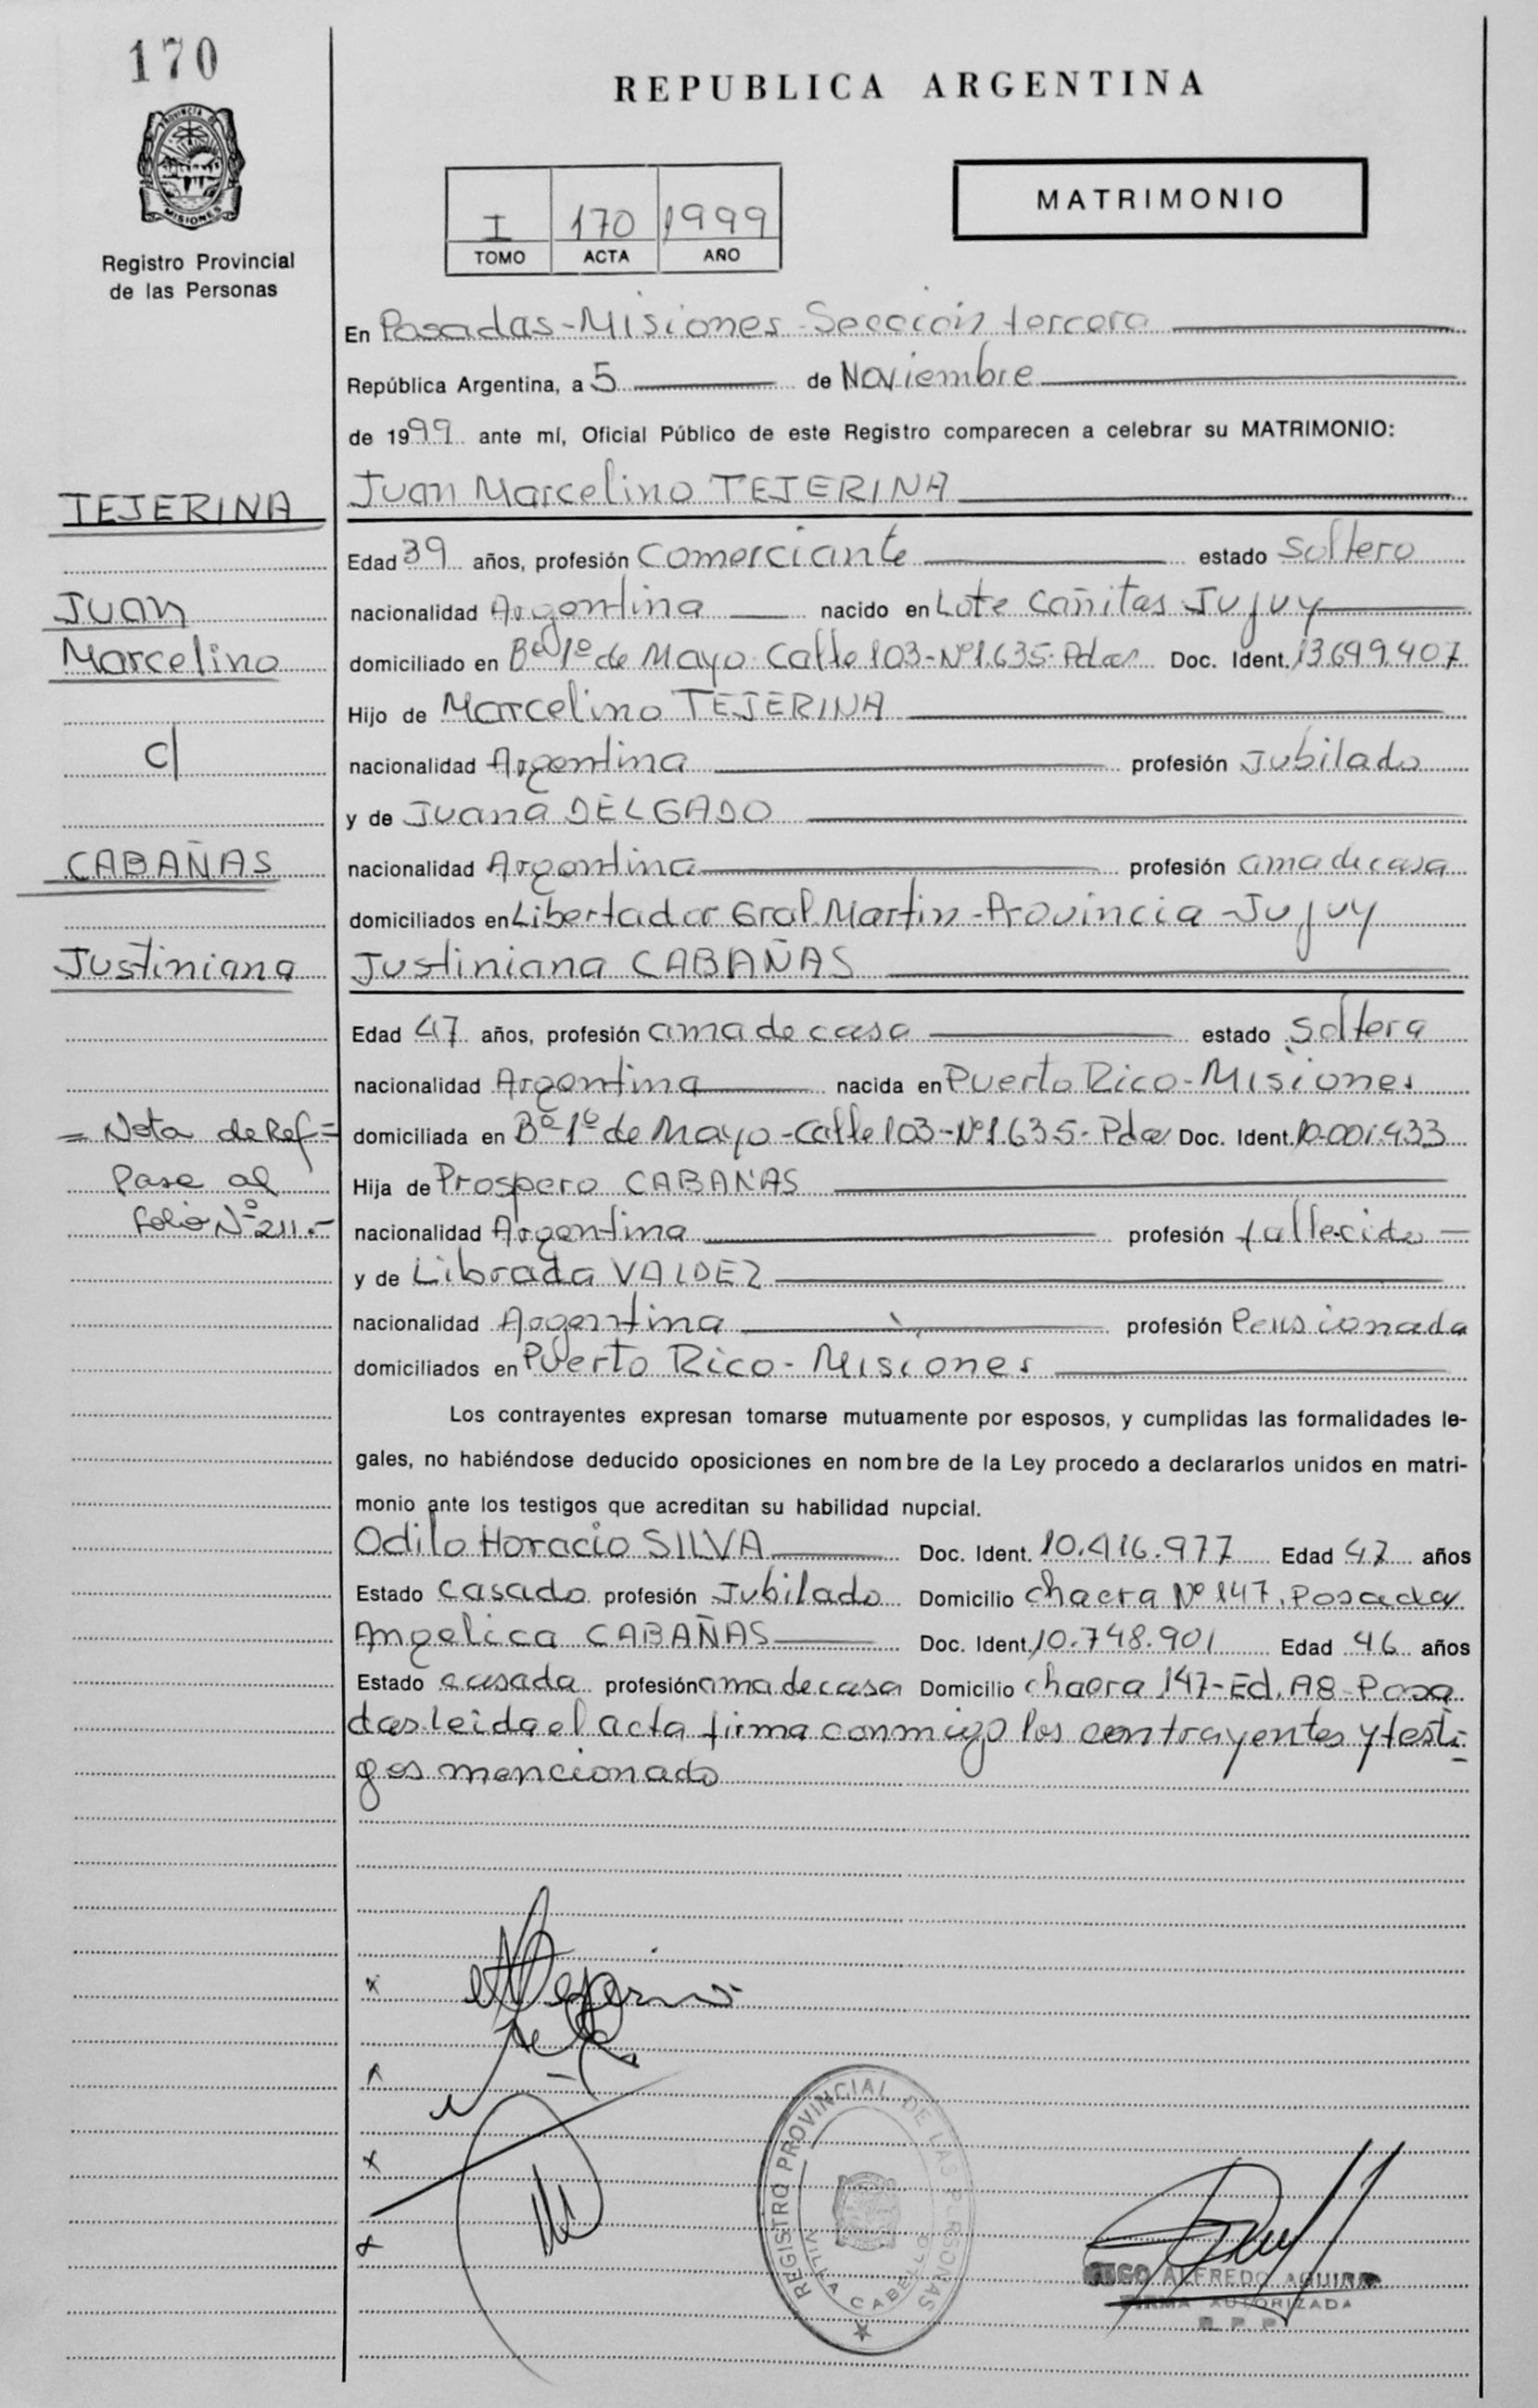 170
REPUBLICA ARGENTINA
PROVINCIA DE
MISIONES
Registro Provincial
de las Personas
I 170 1999
TOMO ACTA AÑO
MATRIMONIO
En Posadas-Misiones-Sección tercera
República Argentina, a 5 de Noviembre
de 1999 ante mí, Oficial Público de este Registro comparecen a celebrar su MATRIMONIO:
TEJERINA
Juan Marcelino TEJERINA
Edad 39 años, profesión comerciante estado soltero
Juan
nacionalidad Argentina nacido en Lote Cañitas Jujuy
Marcelino
domiciliado en Bº 1º de Mayo Calle 103-Nº1.635-Pdas Doc. Ident. 13.699.407
Hijo de Marcelino TEJERINA
c/
nacionalidad Argentina profesión Jubilado
y de Juana DELGADO
CABAÑAS
nacionalidad Argentina profesión ama de casa
domiciliados en Libertador Gral Martin-Provincia-Jujuy
Justiniana
Justiniana CABAÑAS
Edad 47 años, profesión ama de casa estado soltera
nacionalidad Argentina nacida en Puerto Rico-Misiones
= Nota de Ref=
domiciliada en Bº-1º de Mayo-calle 103-Nº1.635-Pdas Doc. Ident. 10.001.433
Pase al
Hija de Prospero CABAÑAS
folio Nº 211.-
nacionalidad Argentina profesión fallecido
y de Librada VALDEZ
nacionalidad Argentina profesión Pensionada
domiciliados en Puerto Rico-Misiones
Los contrayentes expresan tomarse mutuamente por esposos, y cumplidas las formalidades le-
gales, no habiéndose deducido oposiciones en nombre de la Ley procedo a declararlos unidos en matri-
monio ante los testigos que acreditan su habilidad nupcial.
Odilo Horacio SILVA Doc. Ident. 10.416.977 Edad 47 años
Estado casado profesión Jubilado Domicilio chacra Nº 147, Posadas
Angelica CABAÑAS Doc. Ident. 10.748.901 Edad 46 años
Estado casada profesión ama de casa Domicilio chacra 147-Ed. A8-Posa
das leida el acta firma conmigo los contrayentes y testi-
gos mencionado
REGISTRO PROVINCIAL DE LAS PERSONAS
VILLA CABELLO
ALFREDO AGUIRRE
FIRMA AUTORIZADA
R. P. P.